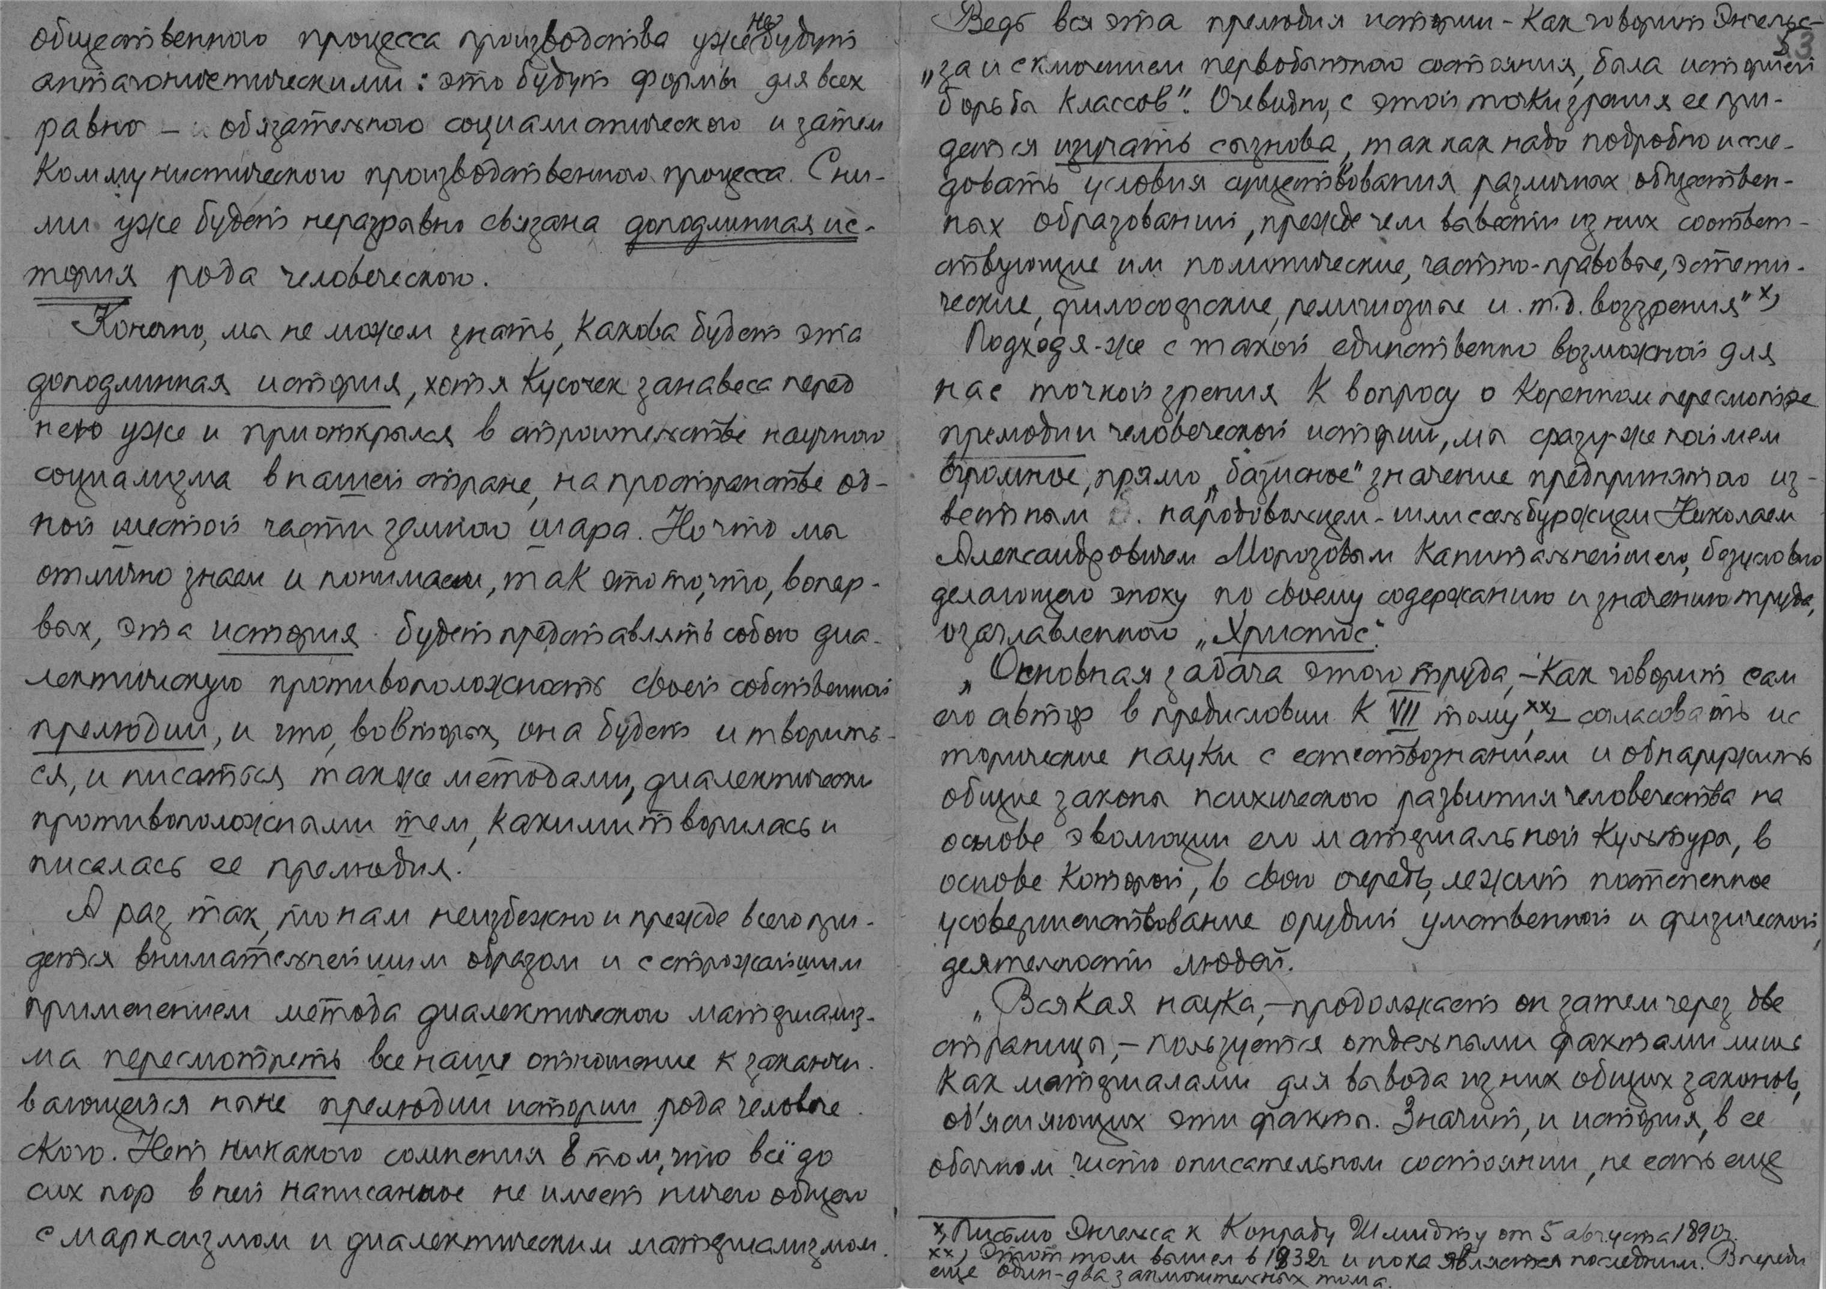 общественного процесса производства уже не будут
антагонистическими: это будут формы для всех
равно – обязательного социалистического и затем
коммунистического производственного процесса. С ни-
ми уже будет неразрывно связана доподлинная ис-
тория рода человеческого.
Конечно, мы не можем знать, какова будет эта
доподлинная история, хотя кусочек занавеса перед
нею уже и приоткрылся в строительстве научного
социализма в нашей стране, на пространстве од-
ной шестой части земного шара. Но что мы
отлично знаем и понимаем, так это то, что, вопер-
вых, эта история будет представлять собою диа-
лектическую противоположность своей собственной
прелюдии, и что, вовторых, она будет и творить-
ся, и писаться также методами, диалектически
противоположными тем, какими творилась и
писалась ее прелюдия.
А раз так, то нам неизбежно и прежде всего при-
дется внимательнейшим образом и с строжайшим
применением метода диалектического материализ-
ма пересмотреть все наше отношение к заканчи-
вающейся ныне прелюдии истории рода человече-
ского. Нет никакого сомнения в том, что всё до
сих пор в ней написанное не имеет ничего общего
с марксизмом и диалектическим материализмом.
Ведь вся эта прелюдия истории – как говорит Энгельс –
33
„за исключением первобытного состояния, была историей
борьбы классов". Очевидно, с этой точки зрения ее при-
дется изучать сызнова, так как надо подробно иссле-
довать условия существования различных обществен-
ных образований, прежде чем вывести из них соответ-
ствующие им политические, частно-правовые, эстети-
ческие, философские, религиозные и. т.д. воззрения" х)
Подходя-же с такой единственно возможной для
нас точкой зрения к вопросу о коренном пересмотре
прелюдии человеческой истории, мы сразу-же поймем
огромное, прямо „базисное" значение предпринятого из-
вестным б. народовольцем-шлиссельбуржцем Николаем
Александровичем Морозовым капитальнейшего, безусловно
делающего эпоху по своему содержанию и значению труда,
озаглавленного „Христос".
„Основная задача этого труда, – как говорит сам
его автор в предисловии к VII тому хх) – согласовать ис
торические науки с естествознанием и обнаружить
общие законы психического развития человечества на
основе эволюции его материальной культуры, в
основе которой, в свою очередь, лежит постепенное
усовершенствование орудий умственной и физической
деятельности людей.
„Всякая наука, – продолжает он затем через две
страницы, – пользуется отдельными фактами лишь
как материалами для вывода из них общих законов,
об'ясняющих эти факты. Значит, и история, в ее
обычном чисто описательном состоянии, не есть еще
х) Письмо Энгельса к Конраду Шмидту от 5 августа 1890 г.
хх) Этот том вышел в 1932 г и пока является последним. Впереди
еще один-два заключительных тома.